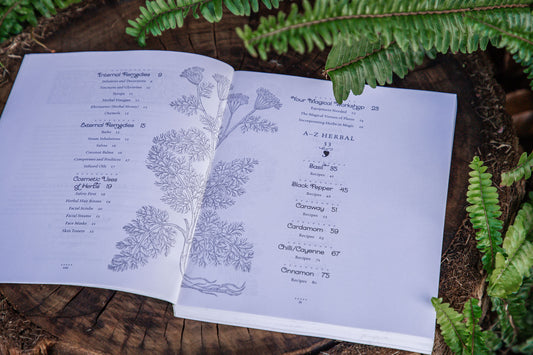 Internal Remedies 9
Infusions and Decoctions
Tinctures and Vibrational
Syrups
Herbal Vinegars
Electuaries (Herbal Honey)
Oxymels
External Remedies 15
Baths
Steam Inhalations
Salves
Coconut Balms
Compresses and Poultices
Infused Oils
Cosmetic Uses
of Herbs 19
Astrin-Fires
Herbal Hair Rinses
Facial Scrubs
Facial Steams
Face Masks
Skin Toners
Your Magical Workshop 23
Equipment Needed
The Magical Virtues of Plants
Incorporating Herbs in Magic
A–Z HERBAL
33
Basil 35
Recipes
Black Pepper 45
Recipes
Caraway 51
Recipes
Cardamom 59
Recipes
Chili/Cayenne 67
Recipes
Cinnamon 75
Recipes 80